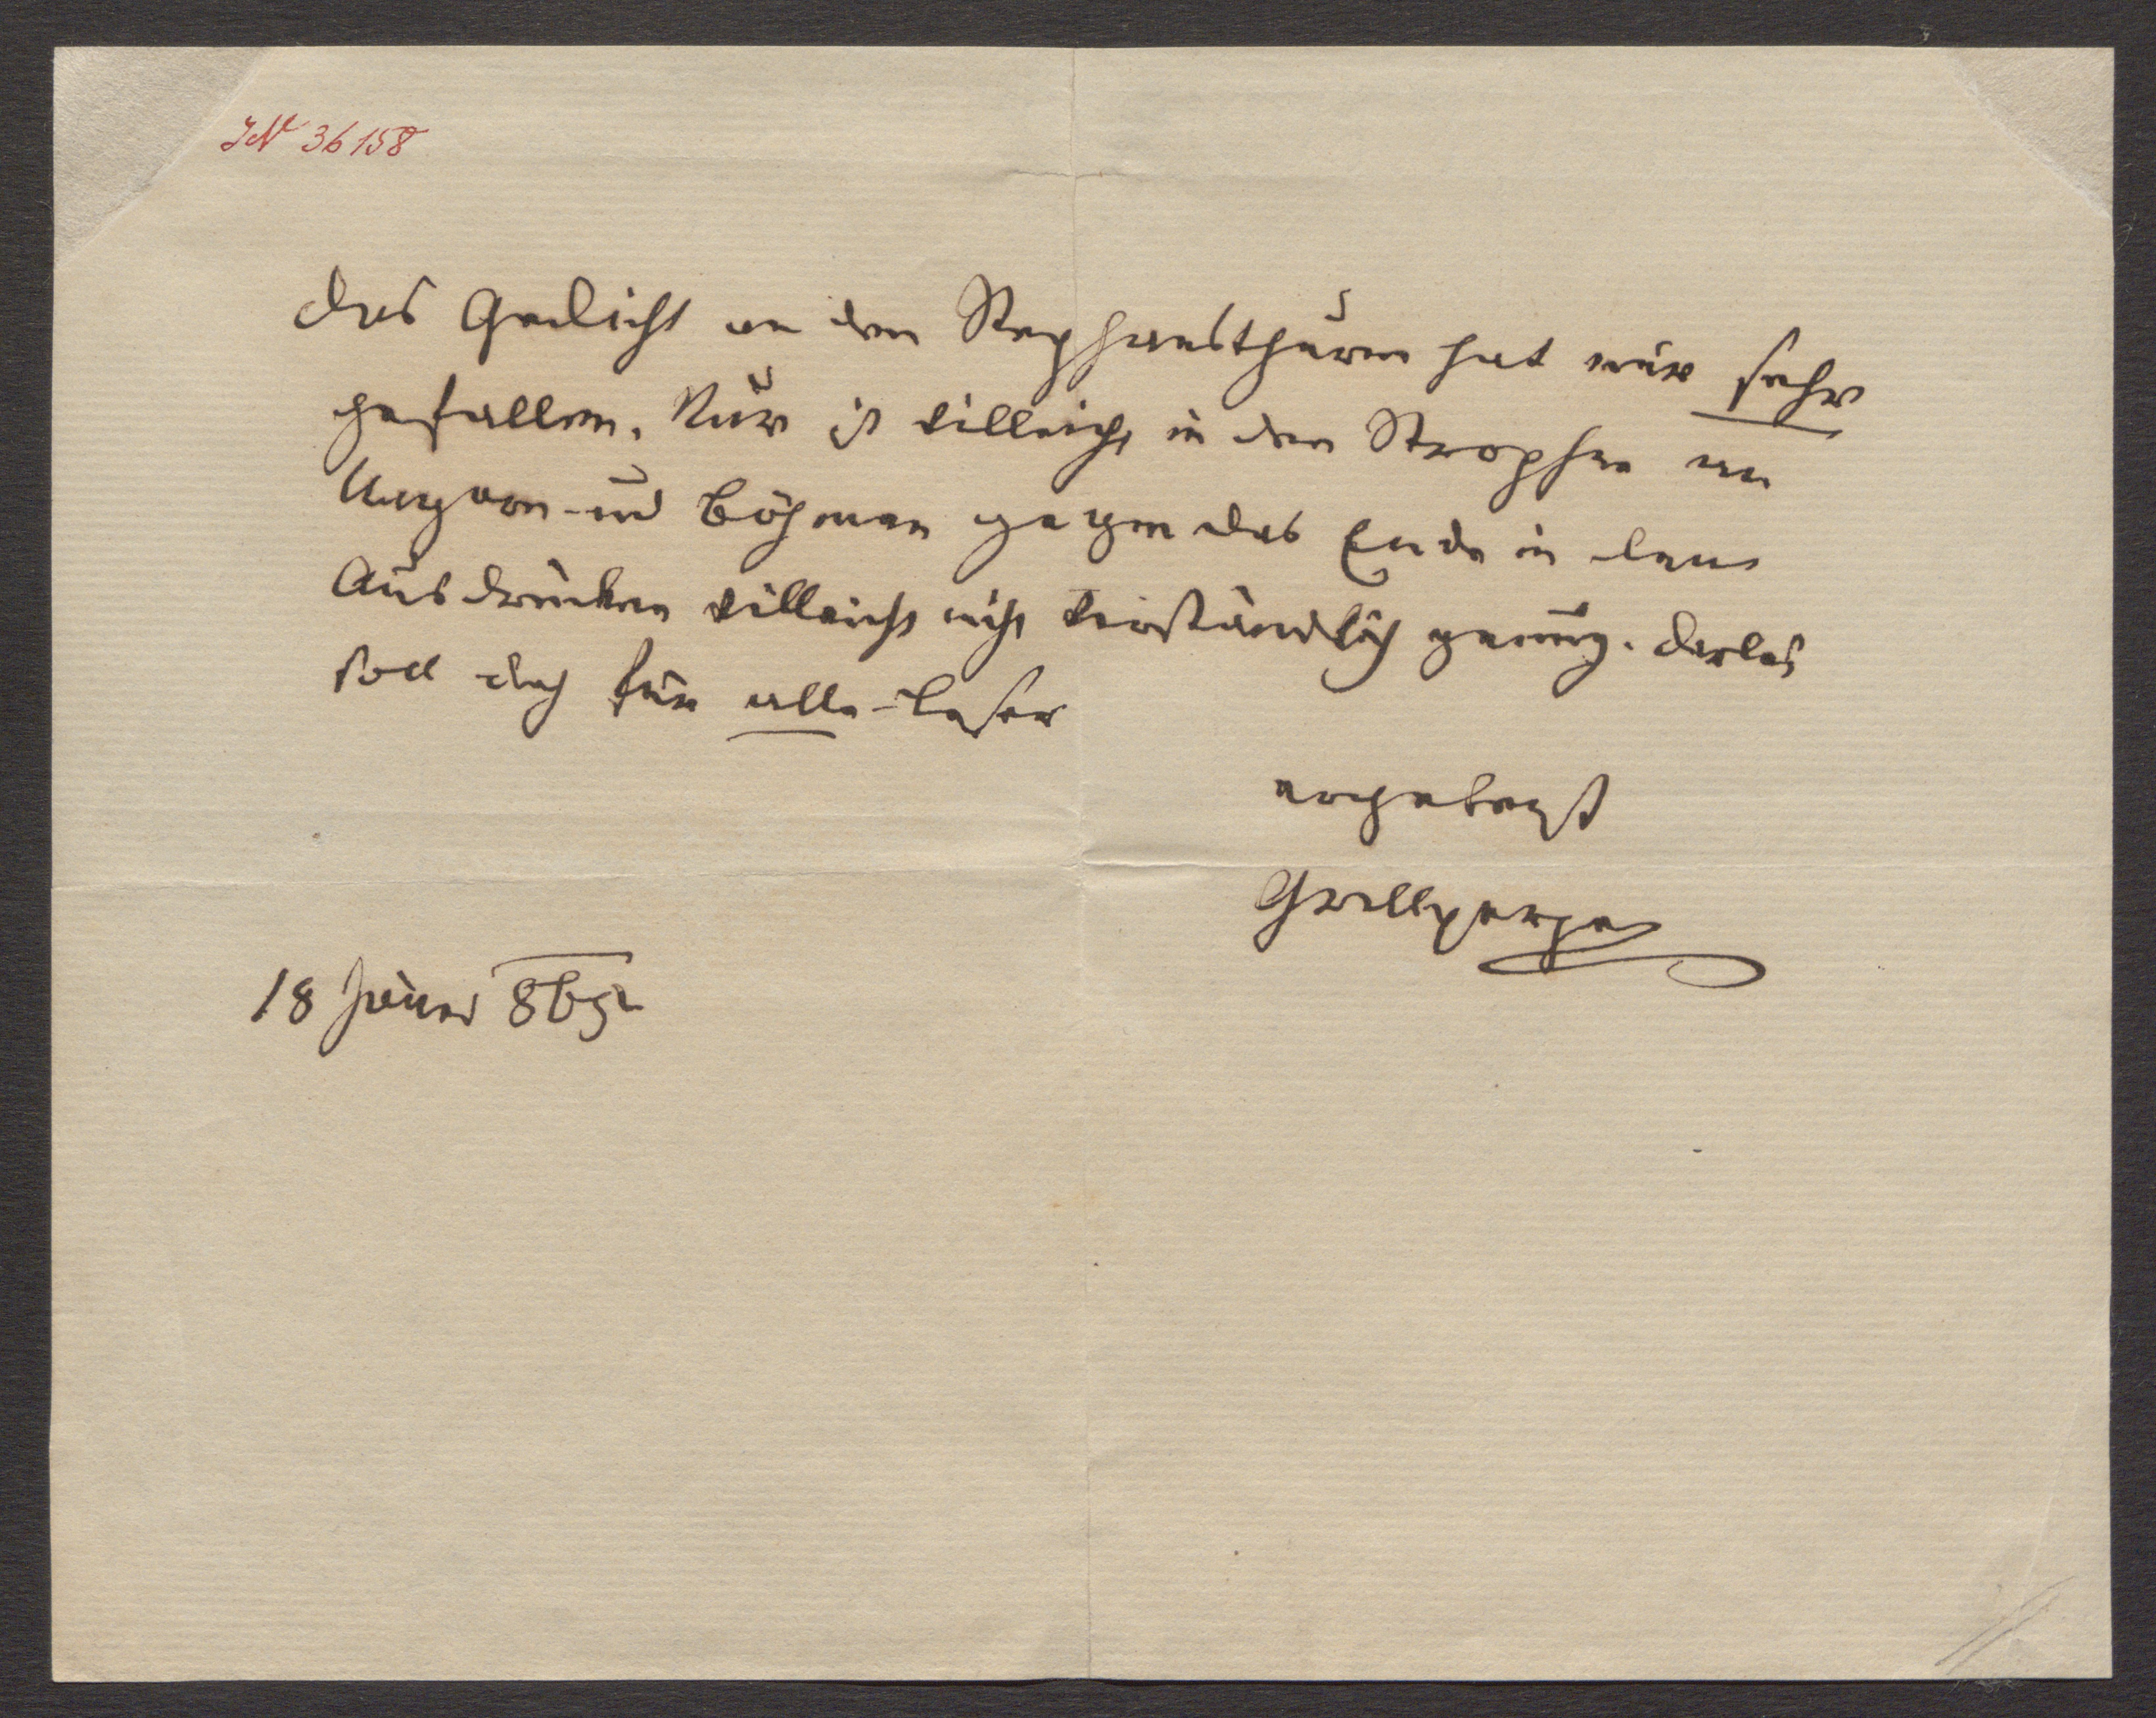 IN 36158
Das Gedicht an den Stephansthurm hat mir sehr
gefallen. Nur ist villeicht in den Strophen an
Ungarn und Böhmen gegen das Ende in den
Ausdrücken villeicht nicht verständlich genug. Derlei
soll doch für alle Leser
ergebenst
Grillparzer
18 Jäner 865